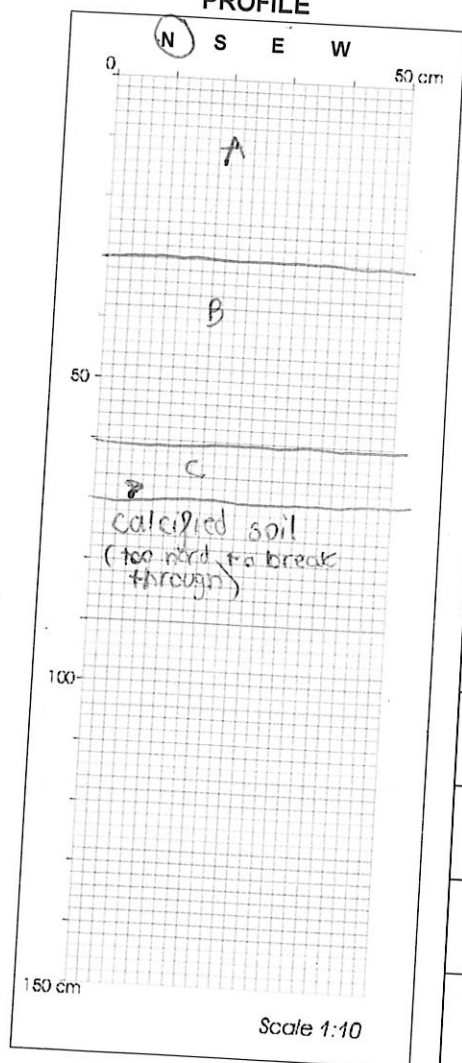 PROFILE
N S E W
0 50 cm
A
B
50
C
calcified soil
(too hard to break
through)
100
150 cm
Scale 1:10